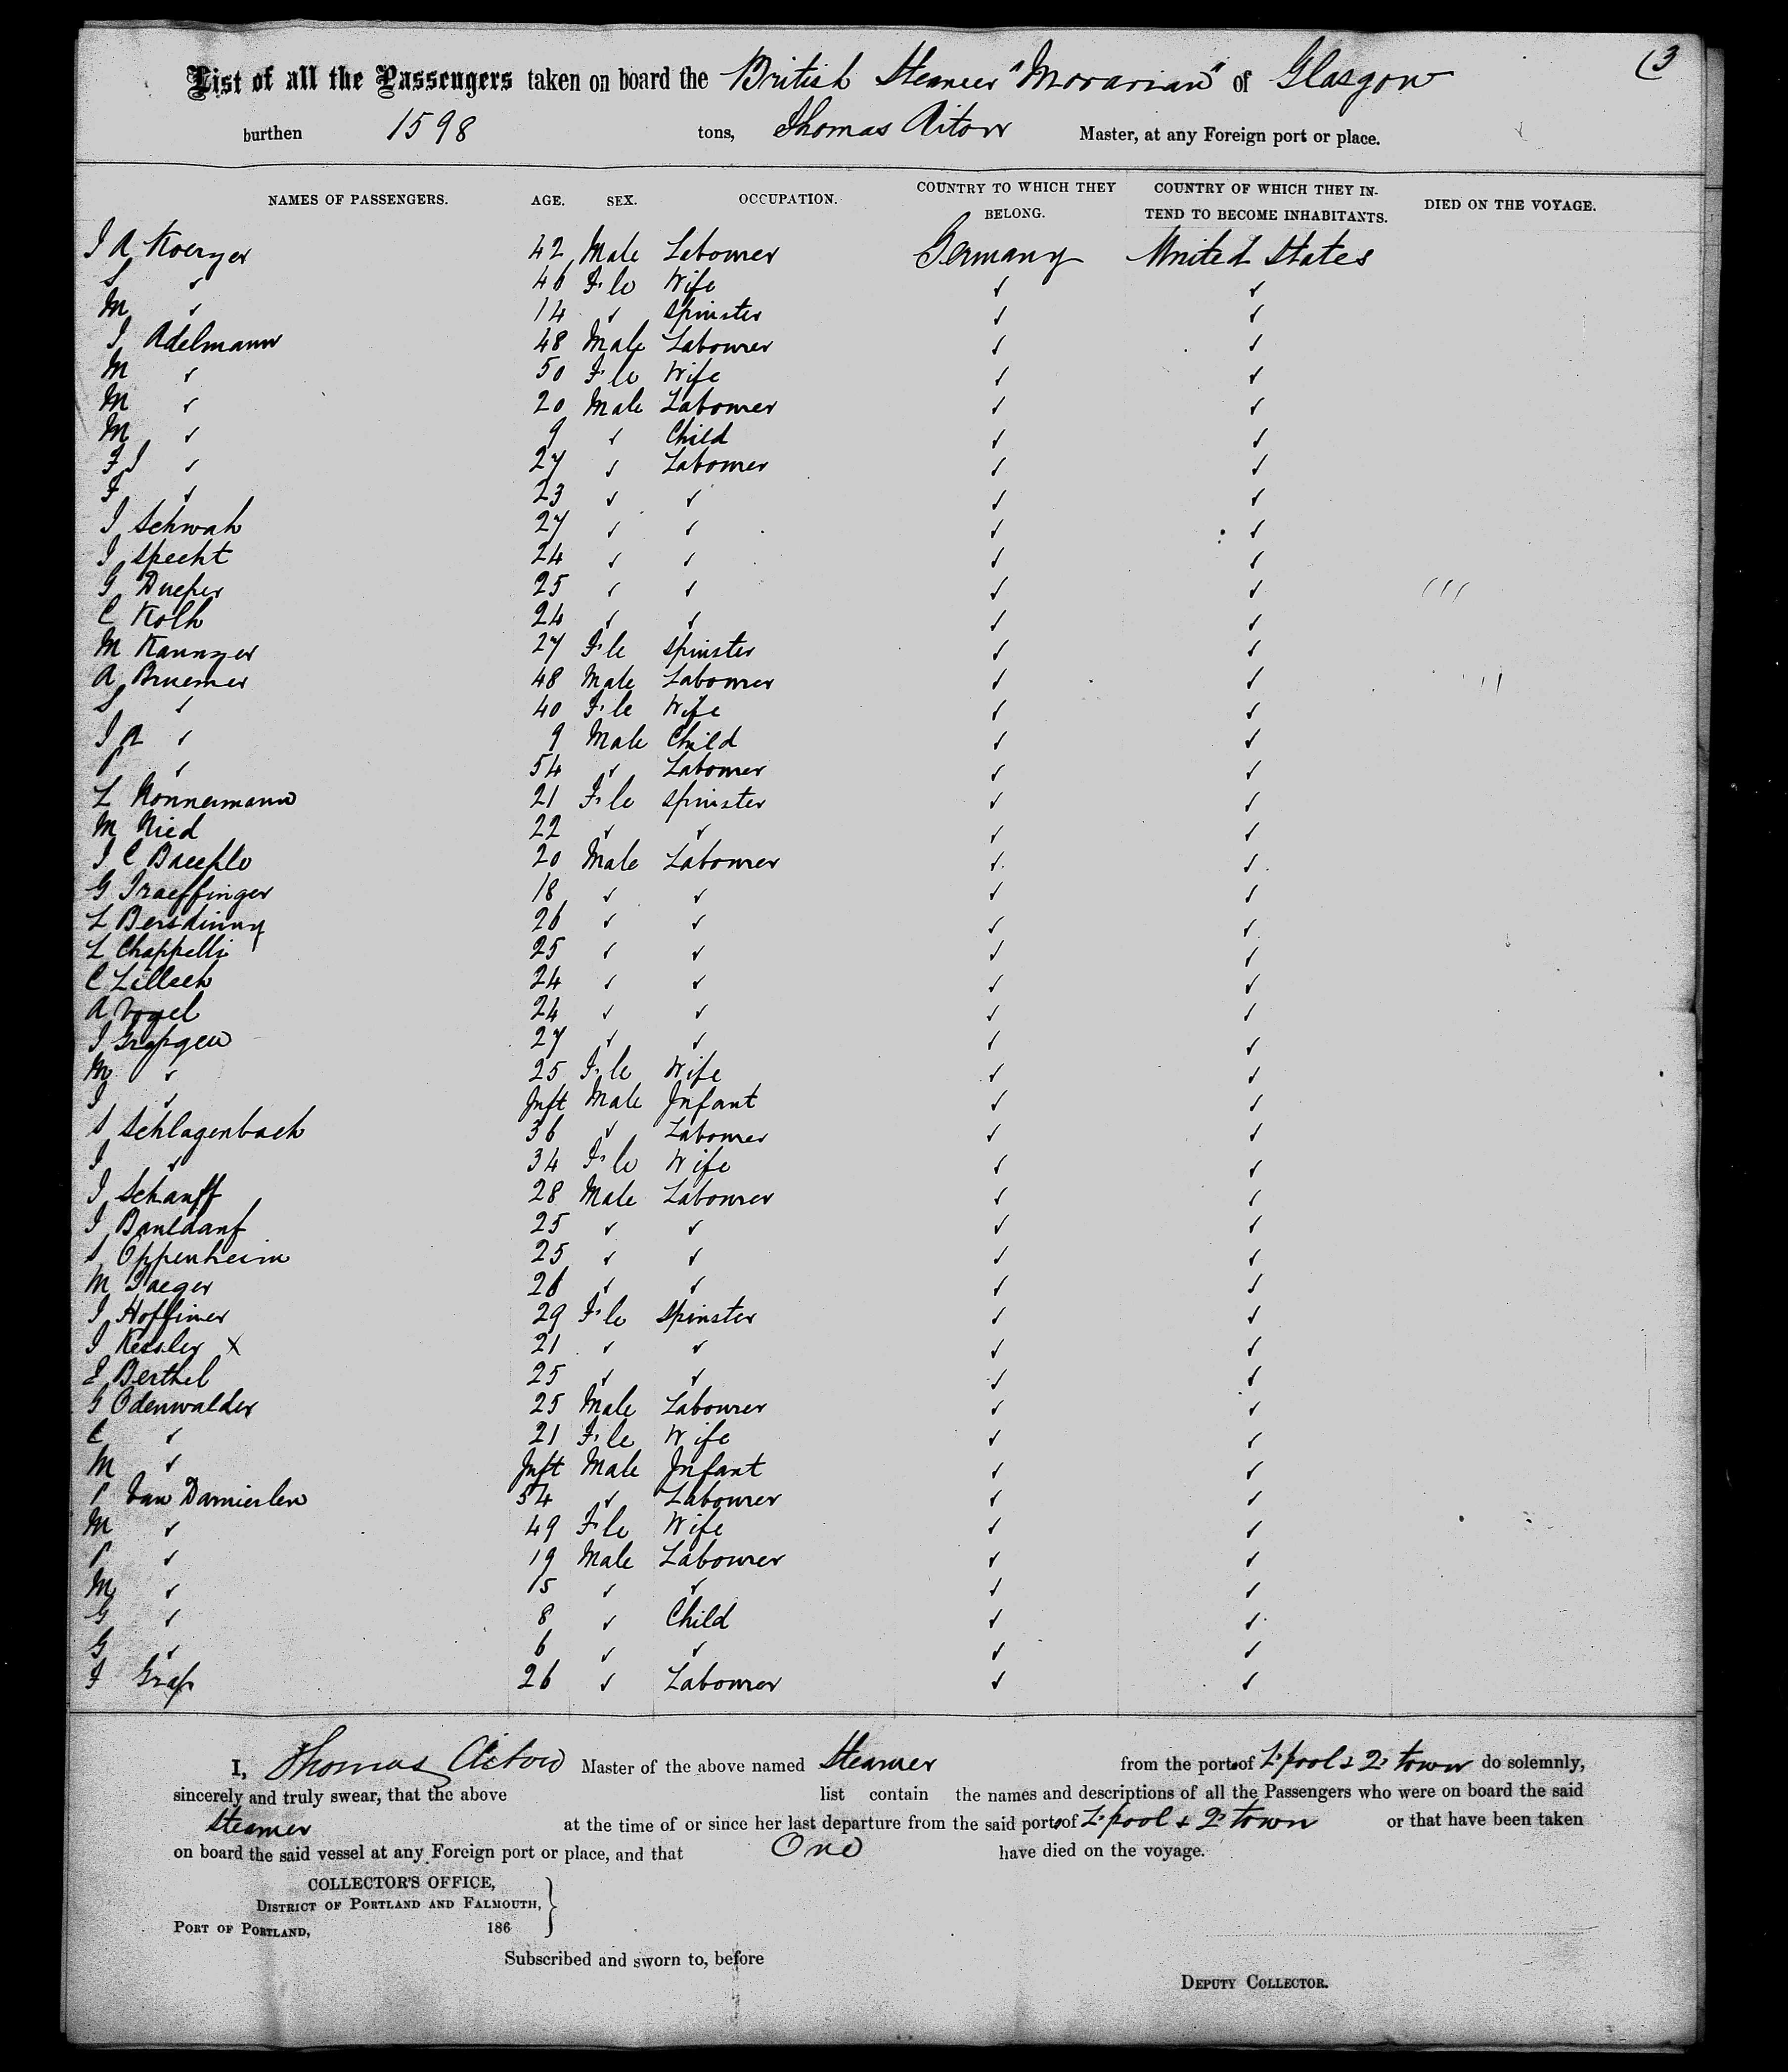 (3
List of all the Passengers taken on board the British Steamer "Moravian" of Glasgow
burthen 1598 tons, Thomas Aiton Master, at any Foreign port or place.
NAMES OF PASSENGERS. AGE. SEX. OCCUPATION. COUNTRY TO WHICH THEY BELONG. COUNTRY OF WHICH THEY INTEND TO BECOME INHABITANTS. DIED ON THE VOYAGE.
J A Koerger 42 Male Labourer Germany United States
S " 46 F.le Wife " "
M " 14 " Spinster " "
J Adelmann 48 Male Labourer " "
M " 50 F.le Wife " "
M " 20 Male Labourer " "
M " 9 " Child " "
F J " 27 " Labourer " "
F " 23 " " " "
J Schwab 27 " " " "
J Specht 24 " " " "
G Dueper 25 " " " "
C Kolb 24 " " " "
M Kannzer 27 F.le Spinster " "
A Bruemer 48 Male Labourer " "
S " 40 F.le Wife " "
J A " 9 Male Child " "
P " 54 " Labourer " "
L Nonnemann 21 F.le Spinster " "
M Nied 22 " " " "
J C Baeuhle 20 Male Labourer " "
G Traeffinger 18 " " " "
L Bersdinny 26 " " " "
L Chappelli 25 " " " "
C Lilleck 24 " " " "
A Vogel 24 " " " "
J Grapgew 27 " " " "
M " 25 F.le Wife " "
J " Inft Male Infant " "
S Schlagenbach 36 " Labourer " "
J " 34 F.le Wife " "
J Schanff 28 Male Labourer " "
J Bauldauf 25 " " " "
S Oppenheim 25 " " " "
M Jaeger 26 " " " "
J Hoffmer 29 F.le Spinster " "
J Kessler X 21 " " " "
E Berthel 25 " " " "
G Odenwalder 25 Male Labourer " "
C " 21 F.le Wife " "
M " Inft Male Infant " "
P Van Damierlen 54 " Labourer " "
M " 49 F.le Wife " "
P " 19 Male Labourer " "
M " 15 " " " "
G " 8 " Child " "
G " 6 " " " "
F Graf 26 " Labourer " "
I, Thomas Aiton Master of the above named Steamer from the ports of L.pool & Q. town do solemnly,
sincerely and truly swear, that the above list contain the names and descriptions of all the Passengers who were on board the said
Steamer at the time of or since her last departure from the said ports of L.pool & Q. town or that have been taken
on board the said vessel at any Foreign port or place, and that One have died on the voyage.
COLLECTOR'S OFFICE,
DISTRICT OF PORTLAND AND FALMOUTH,
PORT OF PORTLAND, 186
Subscribed and sworn to, before
DEPUTY COLLECTOR.